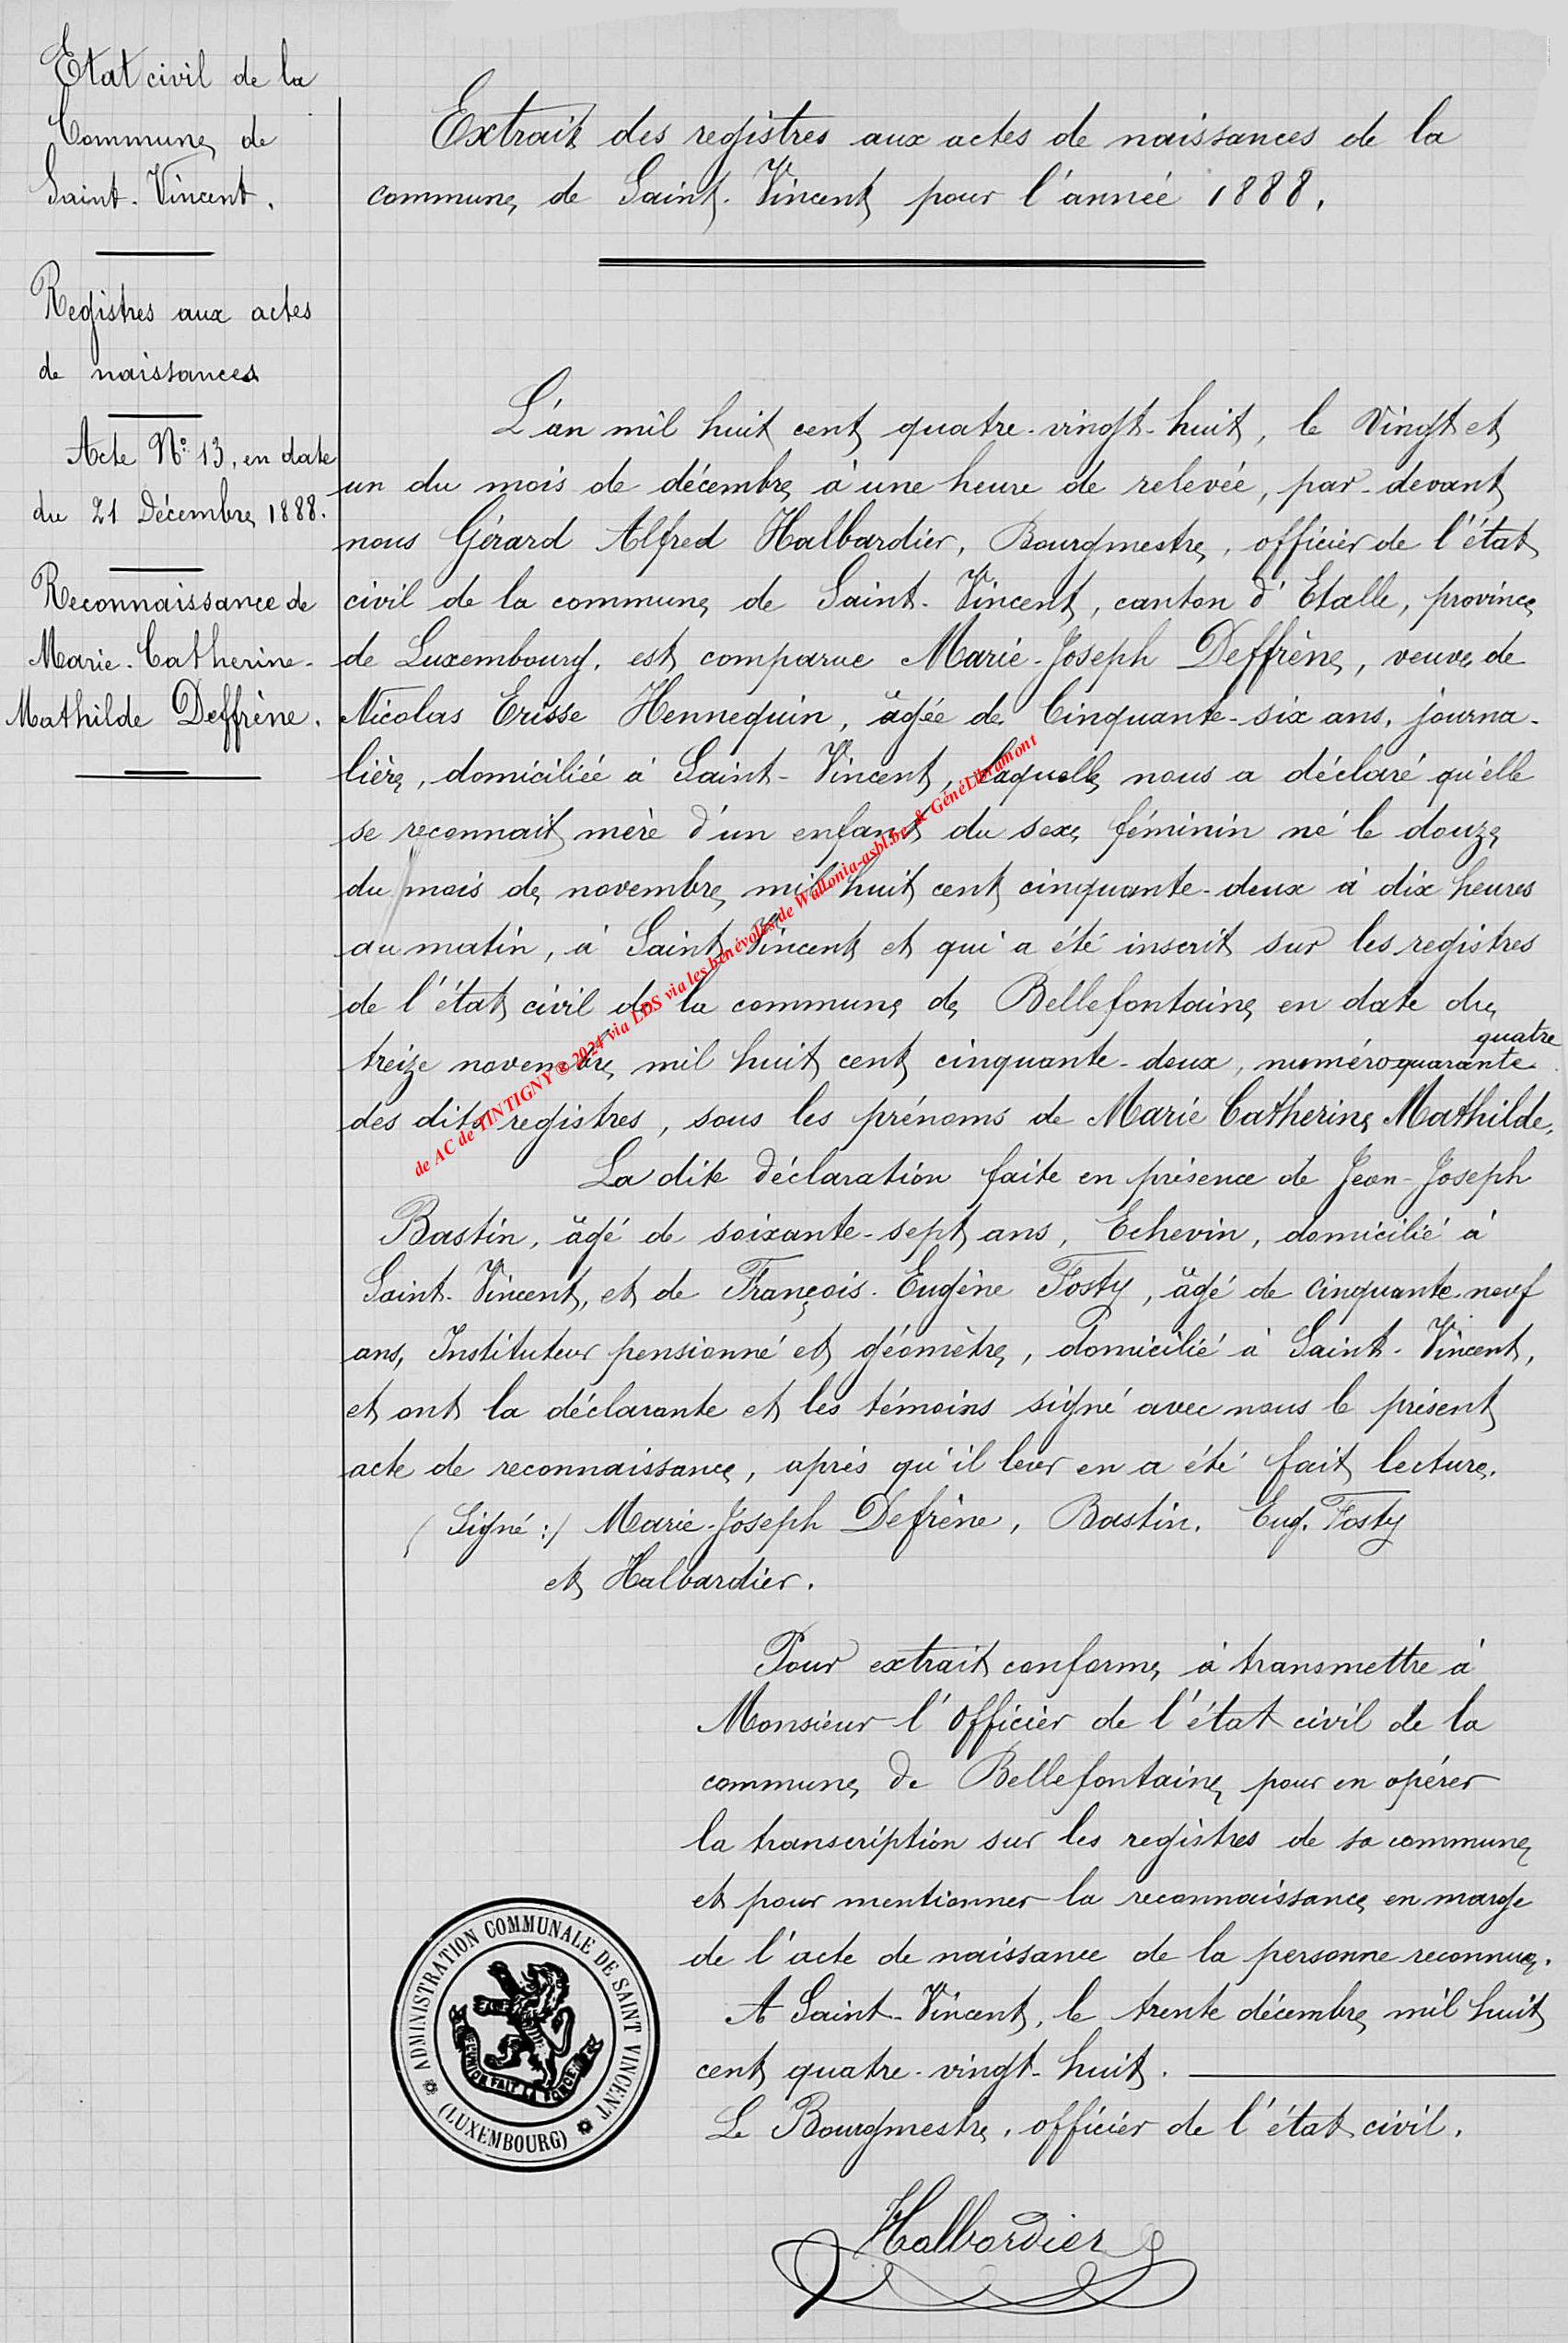 Etat civil de la
Commune de
Saint-Vincent.
Registres aux actes
de naissances
Acte N° 13, en date
du 21 Décembre 1888.
Reconnaissance de
Marie-Catherine-
Mathilde Deffrène.
Extrait des registres aux actes de naissances de la
commune de Saint-Vincent pour l'année 1888.
L'an mil huit cent quatre-vingt-huit, le Vingt et
un du mois de décembre à une heure de relevée, par-devant
nous Gérard Alfred Halbardier, Bourgmestre, officier de l'état
civil de la commune de Saint-Vincent, canton d'Etalle, province
de Luxembourg, est comparue Marie-Joseph Deffrène, veuve de
Nicolas Erisse Hennequin, âgée de Cinquante-six ans, journa-
lière, domiciliée à Saint-Vincent, laquelle nous a déclaré qu'elle
se reconnait mère d'un enfant du sexe féminin né le douze
du mois de novembre mil huit cent cinquante-deux à dix heures
du matin, à Saint-Vincent et qui a été inscrit sur les registres
de l'état civil de la commune de Bellefontaine en date du
treize novembre mil huit cent cinquante-deux, numéro quarante quatre
des dits registres, sous les prénoms de Marie Catherine Mathilde.
La dite déclaration faite en présence de Jean-Joseph
Bastin, âgé de soixante-sept ans, Echevin, domicilié à
Saint-Vincent, et de François-Eugène Fosty, âgé de cinquante-neuf
ans, Instituteur pensionné et géomètre, domicilié à Saint-Vincent,
et ont la déclarante et les témoins signé avec nous le présent
acte de reconnaissance, après qu'il leur en a été fait lecture.
(Signé:) Marie-Joseph Defrène, Bastin. Eug. Fosty
et Halbardier.
Pour extrait conforme à transmettre à
Monsieur l'Officier de l'état civil de la
commune de Bellefontaine pour en opérer
la transcription sur les registres de sa commune
et pour mentionner la reconnaissance en marge
de l'acte de naissance de la personne reconnue.
A Saint-Vincent, le trente décembre mil huit
cent quatre-vingt-huit.
Le Bourgmestre, officier de l'état civil.
Halbardier
ADMINISTRATION COMMUNALE DE SAINT VINCENT
(LUXEMBOURG)
L'UNION FAIT LA FORCE
de AC de TINTIGNY © 2024 via LDS via les bénévoles de Wallonia-asbl.be & GénéLibramont